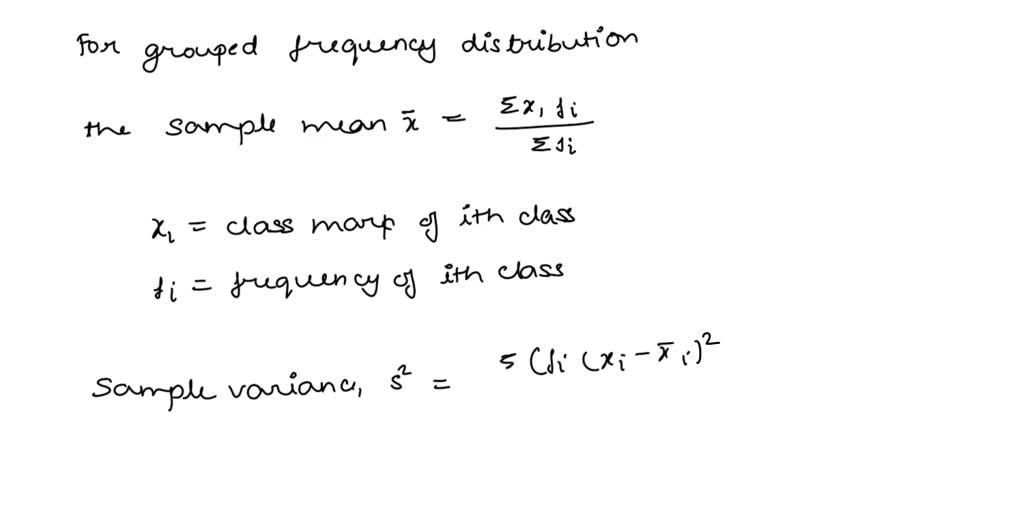 For grouped frequency distribution
the sample mean x̄ = Σxi fi / Σfi
xi = class mark of ith class
fi = frequency of ith class
Sample varianc, s² = Σ (fi (xi - x̄i)²